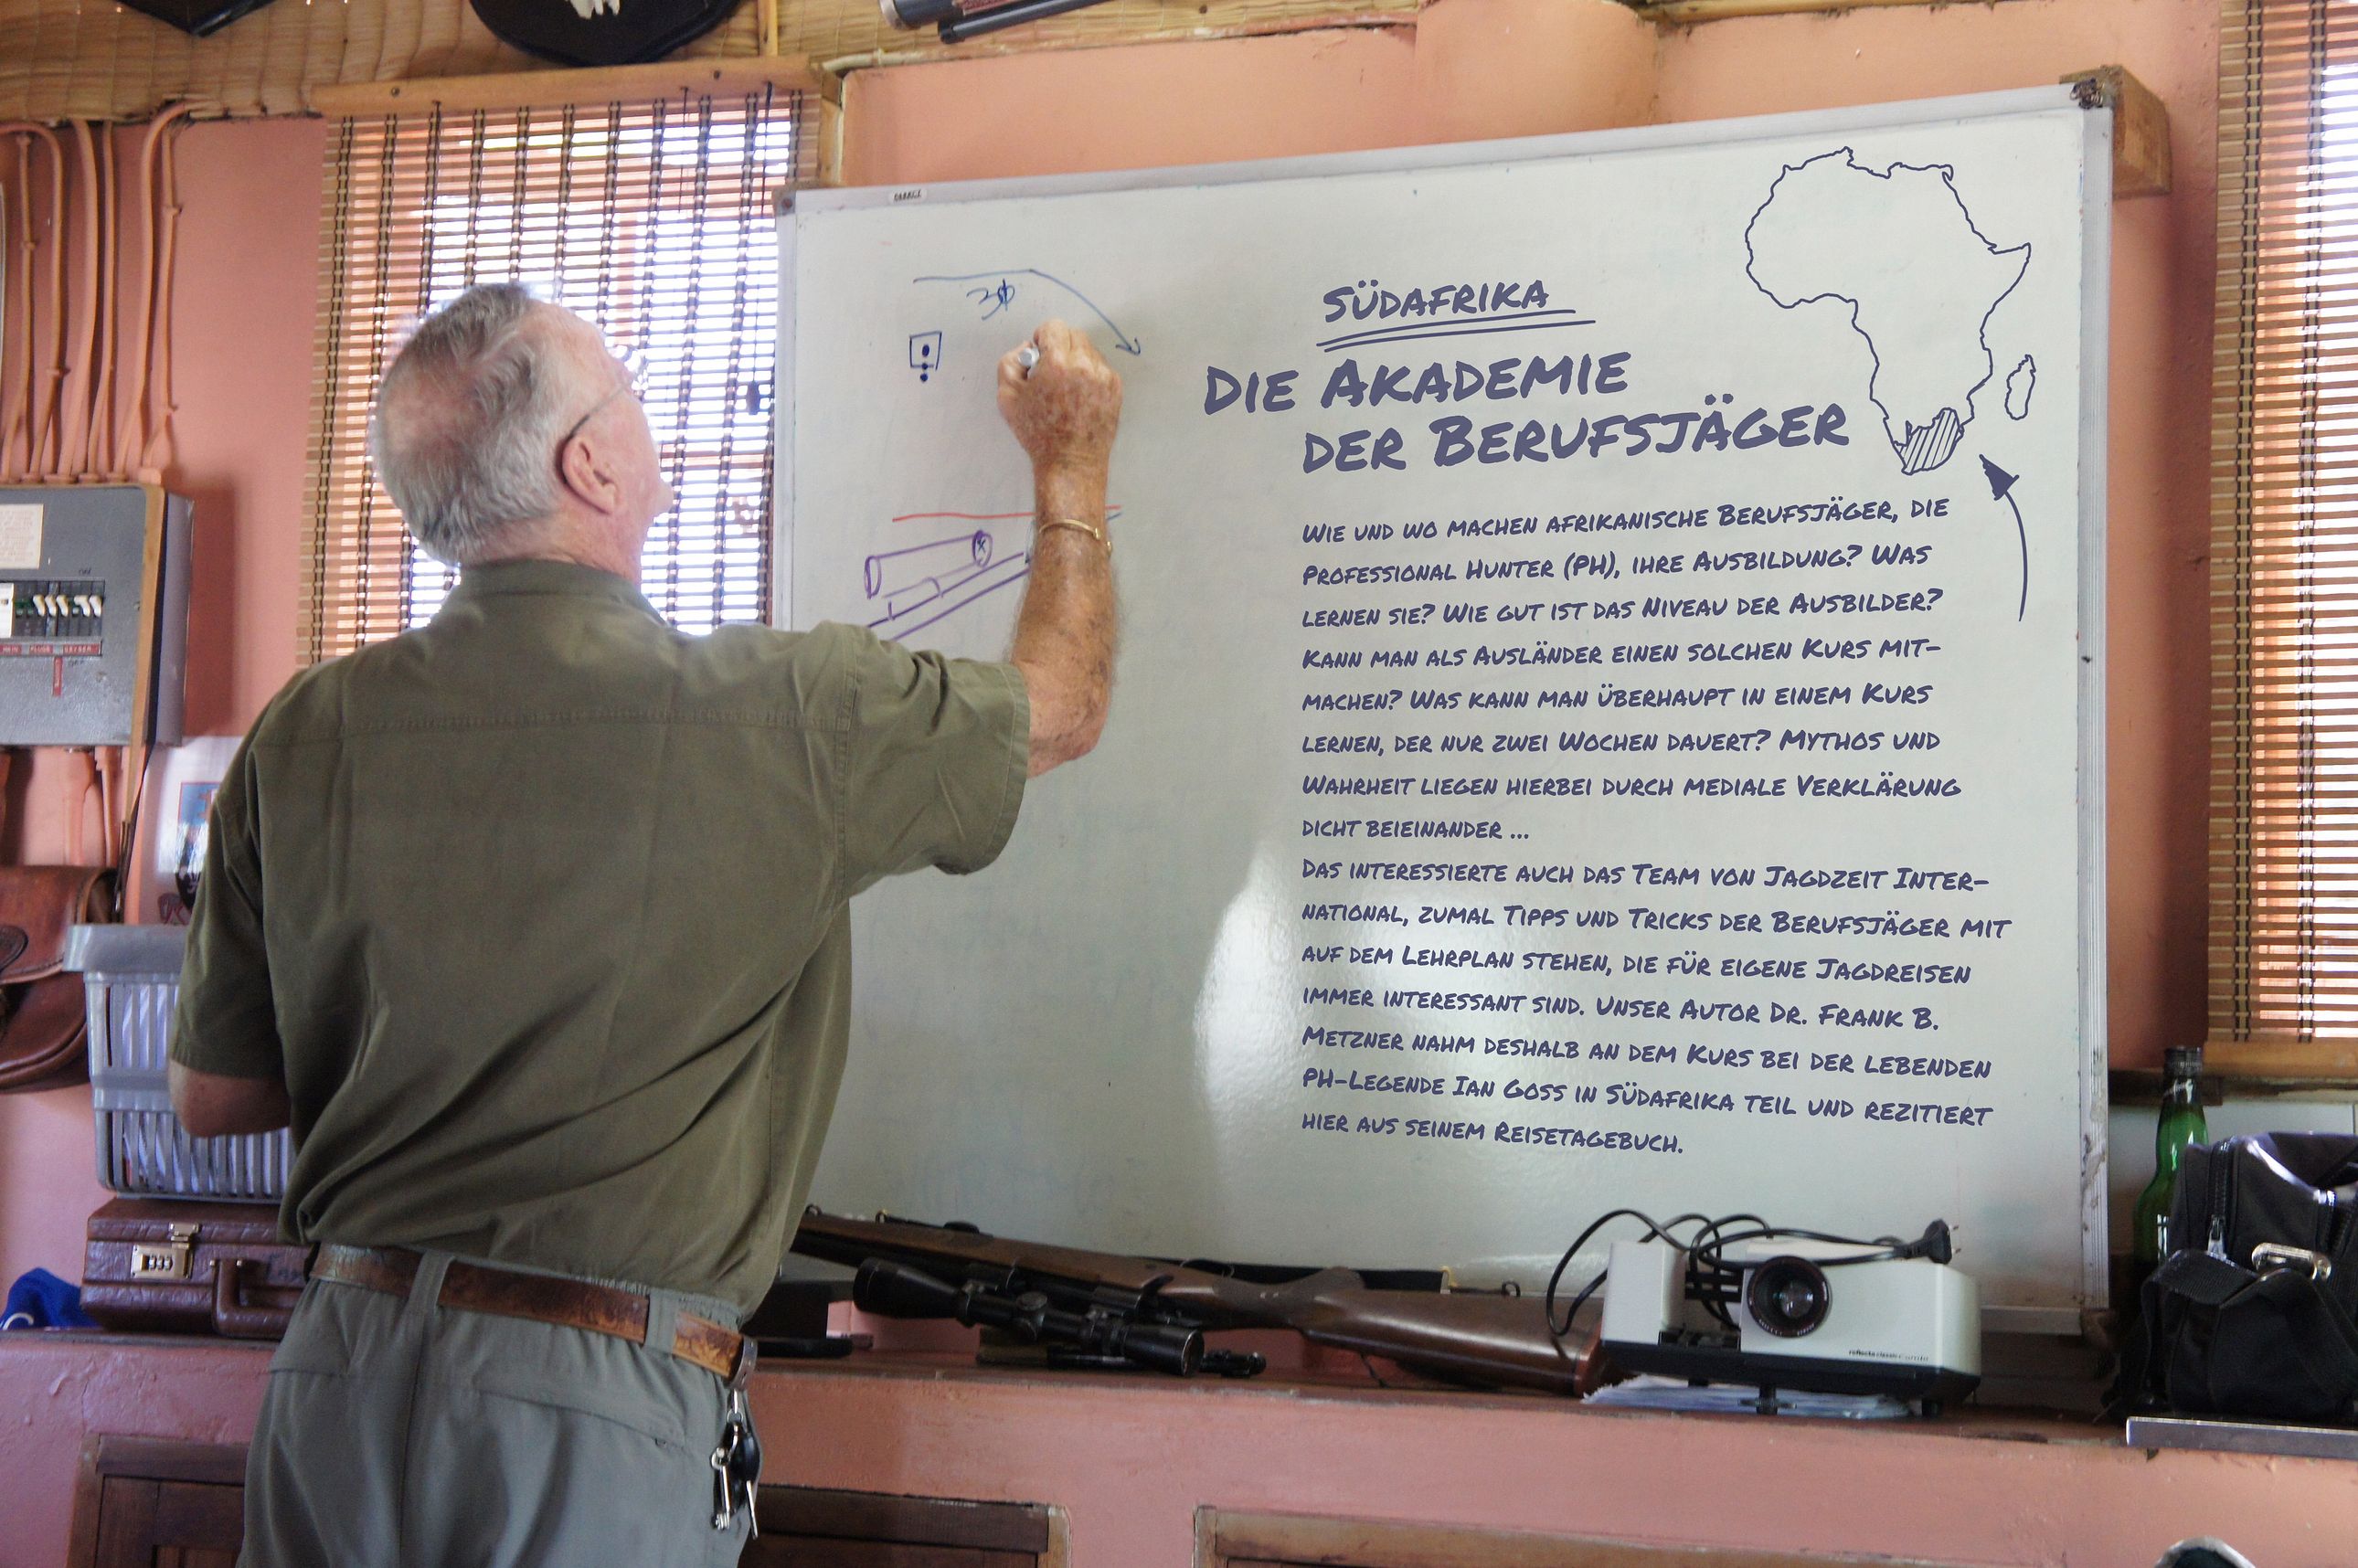 30
SÜDAFRIKA
DIE AKADEMIE
DER BERUFSJÄGER
WIE UND WO MACHEN AFRIKANISCHE BERUFSJÄGER, DIE
PROFESSIONAL HUNTER (PH), IHRE AUSBILDUNG? WAS
LERNEN SIE? WIE GUT IST DAS NIVEAU DER AUSBILDER?
KANN MAN ALS AUSLÄNDER EINEN SOLCHEN KURS MIT-
MACHEN? WAS KANN MAN ÜBERHAUPT IN EINEM KURS
LERNEN, DER NUR ZWEI WOCHEN DAUERT? MYTHOS UND
WAHRHEIT LIEGEN HIERBEI DURCH MEDIALE VERKLÄRUNG
DICHT BEIEINANDER ...
DAS INTERESSIERTE AUCH DAS TEAM VON JAGDZEIT INTER-
NATIONAL, ZUMAL TIPPS UND TRICKS DER BERUFSJÄGER MIT
AUF DEM LEHRPLAN STEHEN, DIE FÜR EIGENE JAGDREISEN
IMMER INTERESSANT SIND. UNSER AUTOR DR. FRANK B.
METZNER NAHM DESHALB AN DEM KURS BEI DER LEBENDEN
PH-LEGENDE IAN GOSS IN SÜDAFRIKA TEIL UND REZITIERT
HIER AUS SEINEM REISETAGEBUCH.